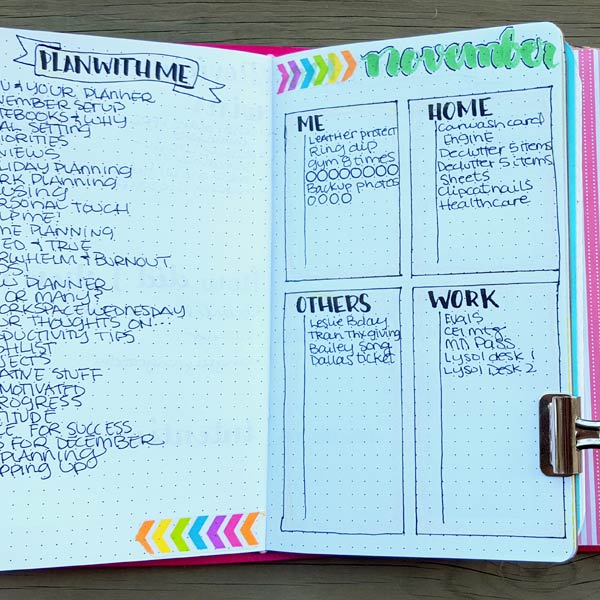 PLAN WITH ME
U & YOUR PLANNER
VEMBER SETUP
TEBOOKS & WHY
AL SETTING
IORITIES
VIEWS
LIDAY PLANNING
RK PLANNING
USING
RSONAL TOUCH
LP ME!
ME PLANNING
ED & TRUE
RWHELM & BURNOUT
DS!
W PLANNER
OR MANY?
ORKSPACE WEDNESDAY
UR THOUGHTS ON...
ODUCTIVITY TIPS
SHLIST
OJECTS
ATIVE STUFF
MOTIVATED
ROGRESS
TITUDE
E FOR SUCCESS
S FOR DECEMBER
PLANNING
PPING UP
november
ME
Leather protect
Ring dip
Gym 8 times
Backup photos
HOME
Carwash card
Engine
Declutter 5 items
Declutter 5 items
Sheets
Clip cat nails
Healthcare
OTHERS
Leslie Bday
Tran Thxgiving
Bailey Song
Dallas ticket
WORK
Evals
CEI mtg
MD Pass
Lysol desk 1
Lysol Desk 2